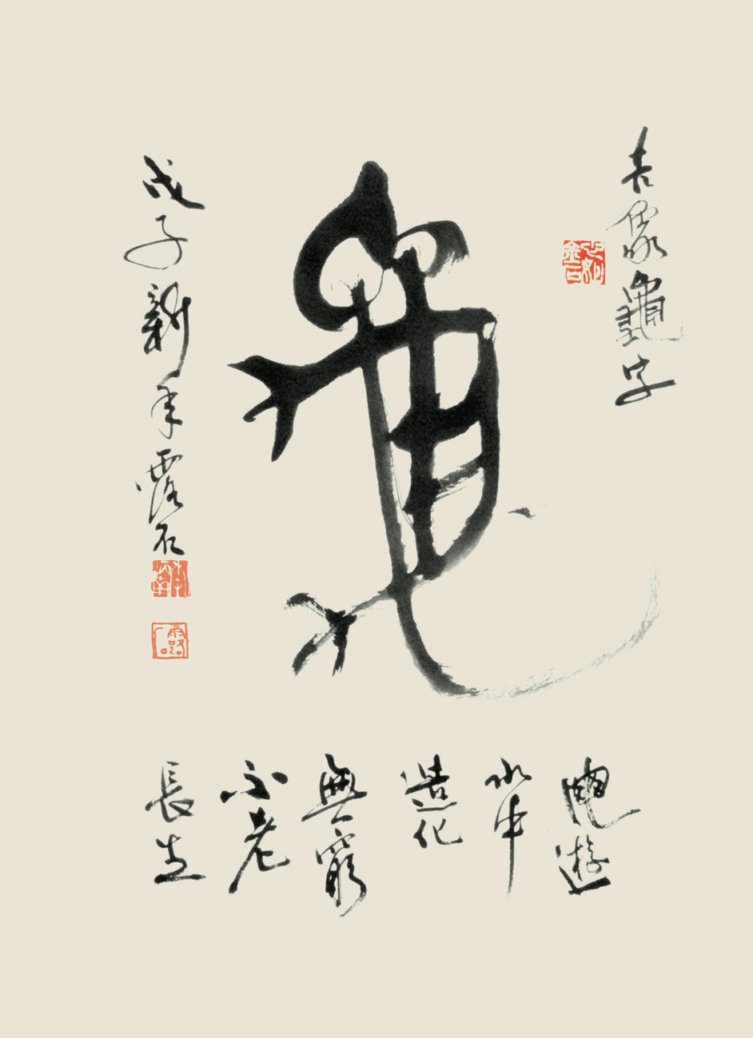 吉象龜字
龜
戊子新年露石
龜遊
水中
造化
無窮
不老
長生